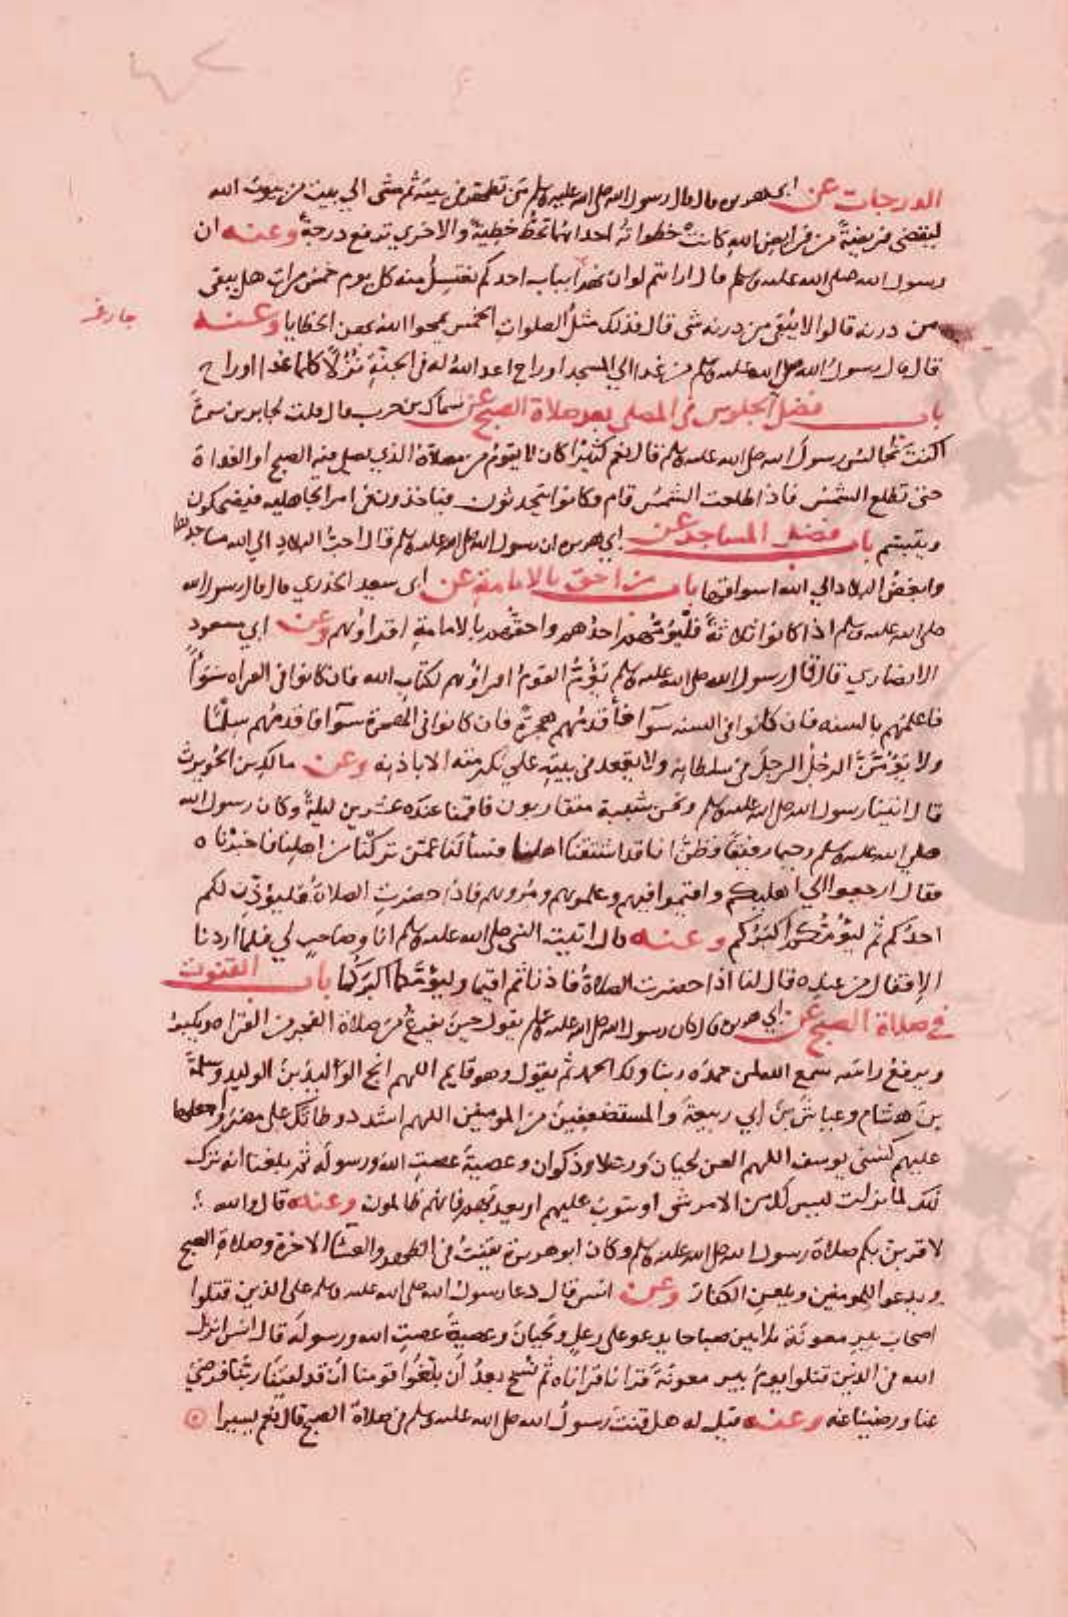 الدرجات عن ابي هريره قال قال رسول الله صلى الله عليه وسلم من تطهر في بيته ثم مشى الي بيت من بيوت الله
ليقضي فريضةً من فرايض الله كانت خطواتُه احداهُما تحطُّ خطيةً والاخري ترفع درجةً وعنه ان
رسول الله صلى الله عليه وسلم قال ارايتم لو ان نهرا بباب احدكم يغتسلُ منه كل يوم خمس مراتٍ هل يبقى
من درنه قالوا لا يبقى من درنه شى قال فذلك مثلُ الصلوات الخمس يمحوا اللهُ بهن الخطايا وعنه
قال قال رسولُ الله صلى الله عليه وسلم من غدا الي المسجد او راح اعد اللهُ له في الجنةِ نُزُلًا كلما غدا او راح
باب فضل الجلوس في المصلى بعد صلاة الصبح عن سماك بن حرب قال قلت لجابر بن سمرة
اكنتَ تجالسُ رسولَ الله صلى الله عليه وسلم قال نعم كثيرًا كان لا يقومُ من مصلاه الذي يصلي فيه الصبح او الغداة
حتى تطلع الشمس فاذا طلعت الشمسُ قام وكانوا يتحدثون فياخذون في امر الجاهليه فيضحكون
ويتبسم باب فضل المساجد عن ابي هريره ان رسول الله صلى الله عليه وسلم قال احبُّ البلاد الي الله مساجدها
وابغضُ البلاد الي الله اسواقها باب من احق بالامامةِ عن ابى سعيد الخدري قال قال رسول الله
صلى الله عليه وسلم اذا كانوا ثلاثةً فليؤمَّهم احدُهم واحقُّهم بالامامةِ اقراؤهم وعن ابي مسعود
الانصاري قال قال رسول الله صلى الله عليه وسلم يَؤُمُّ القومَ اقراؤهم لكتاب الله فان كانوا في القراه سَوَاً
فاعلمهم بالسنه فان كانوا في السنه سوآ فأقدمُهم هجرةً فان كانوا في الهجرة سوآ فاقدمُهم سِلْمًا
ولا يَؤُمَّنَّ الرجُلُ الرجلَ في سلطانِه ولا يقعد في بيتِه علي تكرمته الا باذنِه وعن مالك بن الحُويرث
قال اتينا رسول الله صلى الله عليه وسلم ونحن شببة متقاربون فاقمنا عنده عشرين ليلةً وكان رسول الله
صلى الله عليه وسلم رحيما رفيقًا فظنَّ انا قد اشتقنا اهلنا فسألَنا عمّن تركْنا من اهلِنا فاخبرْناه
فقال ارجعوا الي اهليكم واقيموا فيهم وعلموهم ومُروهم فاذا حضرتِ الصلاةُ فليؤذِّن لكم
احدُكم ثم ليؤُمَّكم اكبَرُكم وعنه قال اتيت النبى صلى الله عليه وسلم انا وصاحبٍ لي فلما اردنا
الاقفال من عنده قال لنا اذا حضرت الصلاةُ فاذنا ثم اقيما وليؤمَّكما اكبركما باب القنوت
في صلاة الصبح عن ابي هريره قال كان رسول الله صلى الله عليه وسلم يقول حينَ يفرغُ من صلاة الفجر من القراه ويكبر
ويرفعُ راسَه سمع الله لمن حمدَه ربنا ولك الحمد ثم يقول وهو قايم اللهم انج الوليدَ بنَ الوليدِ وسلمةَ
بن هشام وعياشَ بنَ ابي ربيعةَ والمستضعفينَ من المومنين اللهم اشدد وطاتَك على مضرَ واجعلها
عليهم كسني يوسف اللهم العن لحيانَ ورعلا وذكوان وعصيةَ عصتِ اللهَ ورسولَه ثم بلغنا انه ترك
ذلك لما نزلت ليس لك من الامر شى او يتوبَ عليهم او يعذبَهم فانهم ظالمون وعنه قال والله
لاقربن بكم صلاة رسول الله صلى الله عليه وسلم وكان ابو هريرة يقنتُ في الظهر والعشا الاخرة وصلاةِ الصبح
ويدعوا للمومنين ويلعن الكفارَ وعن انس قال دعا رسولُ الله صلى الله عليه وسلم على الذين قتلوا
اصحاب بير معونة ثلاثين صباحا يدعو على رعلٍ ولحيانَ وعصيةَ عصتِ الله ورسوله قال انس انزل
الله في الذين قتلوا يومَ بيرِ معونةَ قرانا قراناه ثم نُسخ بعدُ أن بلِّغُوا قومنا أن قد لقينَا ربَّنا فرضيَ
عنا ورضينا عنه وعنه قيل له هل قنتَ رسولُ الله صلى الله عليه وسلم في صلاة الصبح قال نعم يسيرا